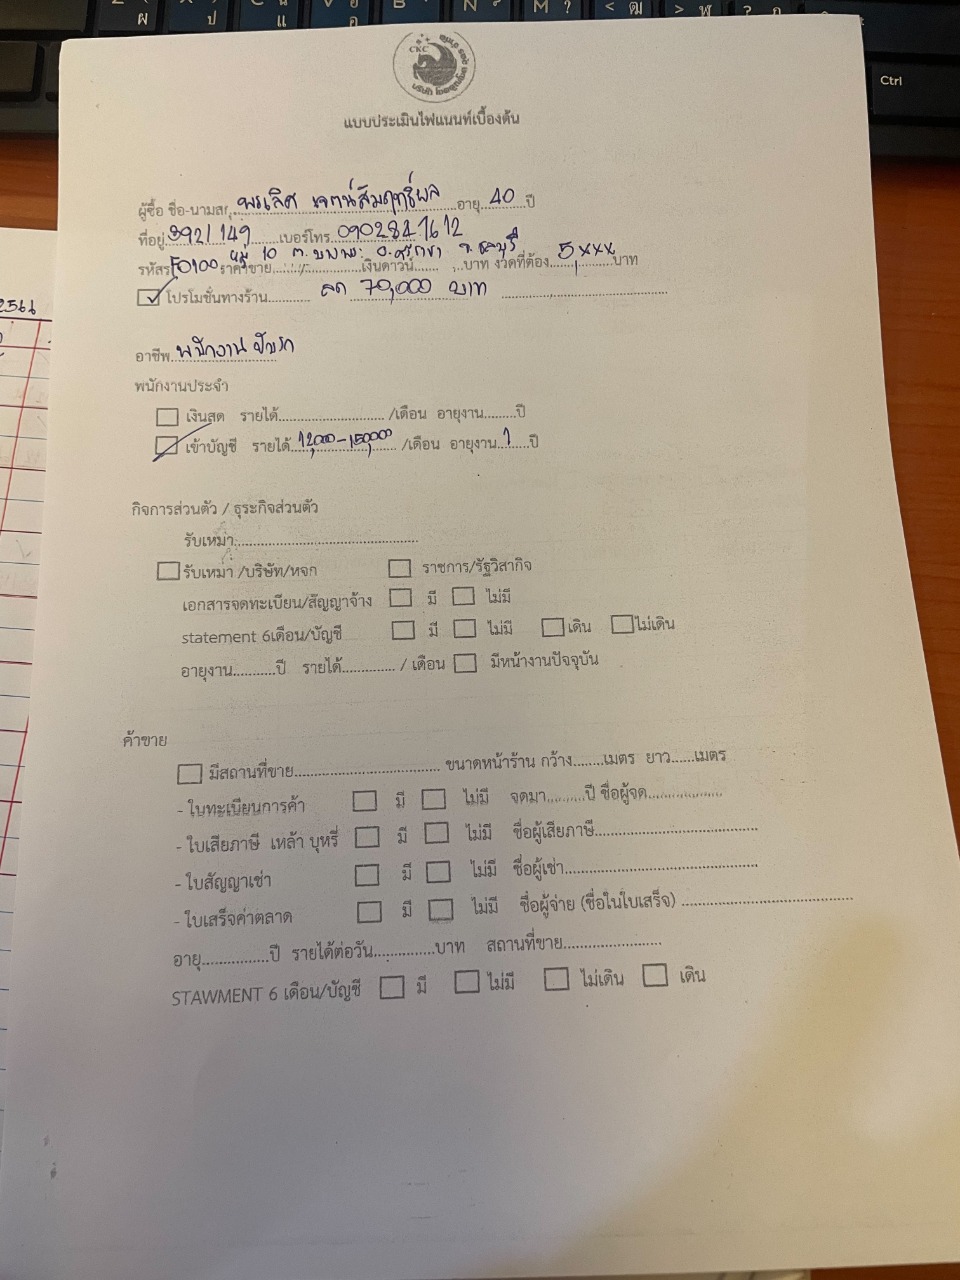 CKC
แบบประเมินไฟแนนท์เบื้องต้น
ผู้ซื้อ ชื่อ-นามสกุ..พรเลิศ เจตน์สัมฤทธิ์ผล..อายุ..40..ปี
ที่อยู่..392/149........เบอร์โทร..0902821612
หมู่ 10 ต.บางพระ อ.ศรีราชา จ.ชลบุรี
รหัสรFO100ราคาขาย..................เงินดาวน์........บาท งวดที่ต้อง..5,xxx......บาท
โปรโมชั่นทางร้าน.......... ลด 70,000 บาท ..............................
อาชีพ..พนักงานขับรถ
พนักงานประจำ
เงินสด รายได้.......................... /เดือน อายุงาน........ปี
เข้าบัญชี รายได้..12,000-15,000.. /เดือน อายุงาน..1.....ปี
กิจการส่วนตัว / ธุระกิจส่วนตัว
รับเหมา..............................................
รับเหมา /บริษัท/หจก ราชการ/รัฐวิสากิจ
เอกสารจดทะเบียน/สัญญาจ้าง มี ไม่มี
statement 6เดือน/บัญชี มี ไม่มี เดิน ไม่เดิน
อายุงาน..........ปี รายได้............. / เดือน มีหน้างานปัจจุบัน
ค้าขาย
มีสถานที่ขาย.................................... ขนาดหน้าร้าน กว้าง........เมตร ยาว......เมตร
- ใบทะเนียนการค้า มี ไม่มี จดมา..........ปี ชื่อผู้จด...................
- ใบเสียภาษี เหล้า บุหรี่ มี ไม่มี ชื่อผู้เสียภาษี........................................
- ใบสัญญาเช่า มี ไม่มี ชื่อผู้เช่า................................................
- ใบเสร็จค่าตลาด มี ไม่มี ชื่อผู้จ่าย (ชื่อในใบเสร็จ) ...........................................
อายุ................ปี รายได้ต่อวัน...............บาท สถานที่ขาย........................
STAWMENT 6 เดือน/บัญชี มี ไม่มี ไม่เดิน เดิน
Ctrl